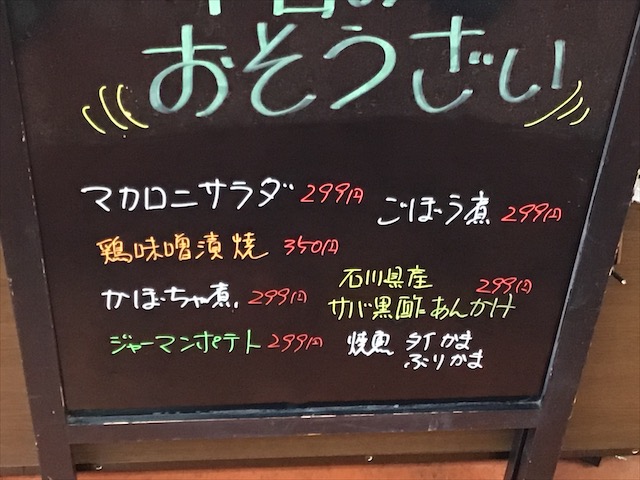 本日の
おそうざい
マカロニサラダ 299円
鶏味噌漬焼 350円
かぼちゃ煮 299円
ジャーマンポテト 299円
ごぼう煮 299円
石川県産
サバ黒酢あんかけ 299円
焼魚 タイかま
ぶりかま